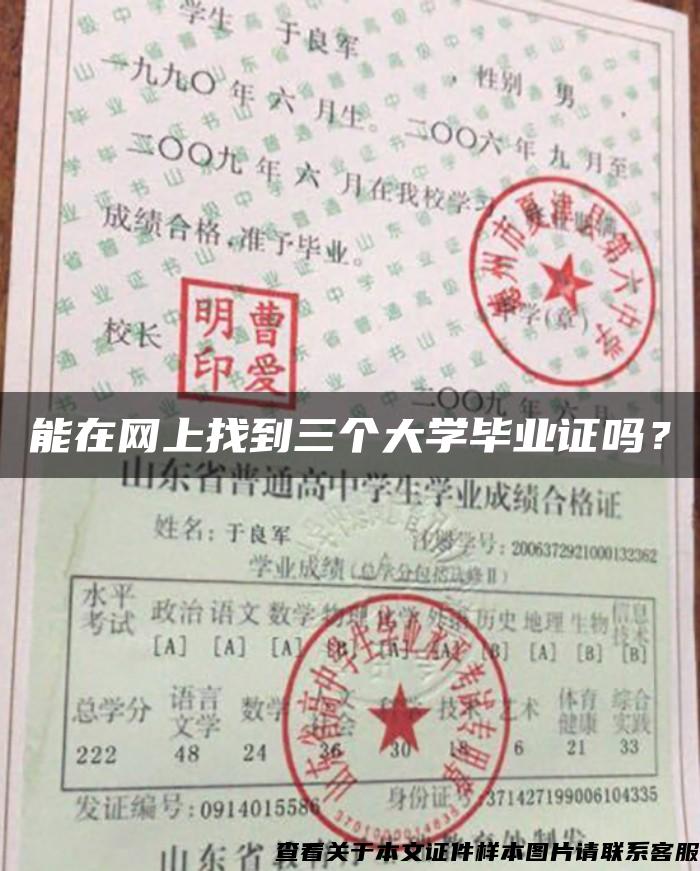 学生 于良军 , 性别 男
一九九〇 年 六 月生。二〇〇六 年 九 月至
二〇〇九 年 六 月在我校学习
成绩合格,准予毕业。
德州市夏津县第六中学
校长
曹爱明印
学(章)
二〇〇九 年 六 月
能在网上找到三个大学毕业证吗?
山东省普通高中学生学业成绩合格证
姓名:于良军 注册学号:2006372921000132362
学业成绩(总学分包括选修Ⅱ)
水平考试 政治 语文 数学 物理 化学 外语 历史 地理 生物 信息技术
[A] [A] [A] [B] [B] [A] [B] [A] [B] [B]
总学分 语言文学 数学 科学 技术 艺术 体育健康 综合实践
222 48 24 36 30 18 6 21 33
山东省高中学生学业水平考试专用章
发证编号:0914015586 身份证号:371427199006104335
山东省
查看关于本文证件样本图片请联系客服